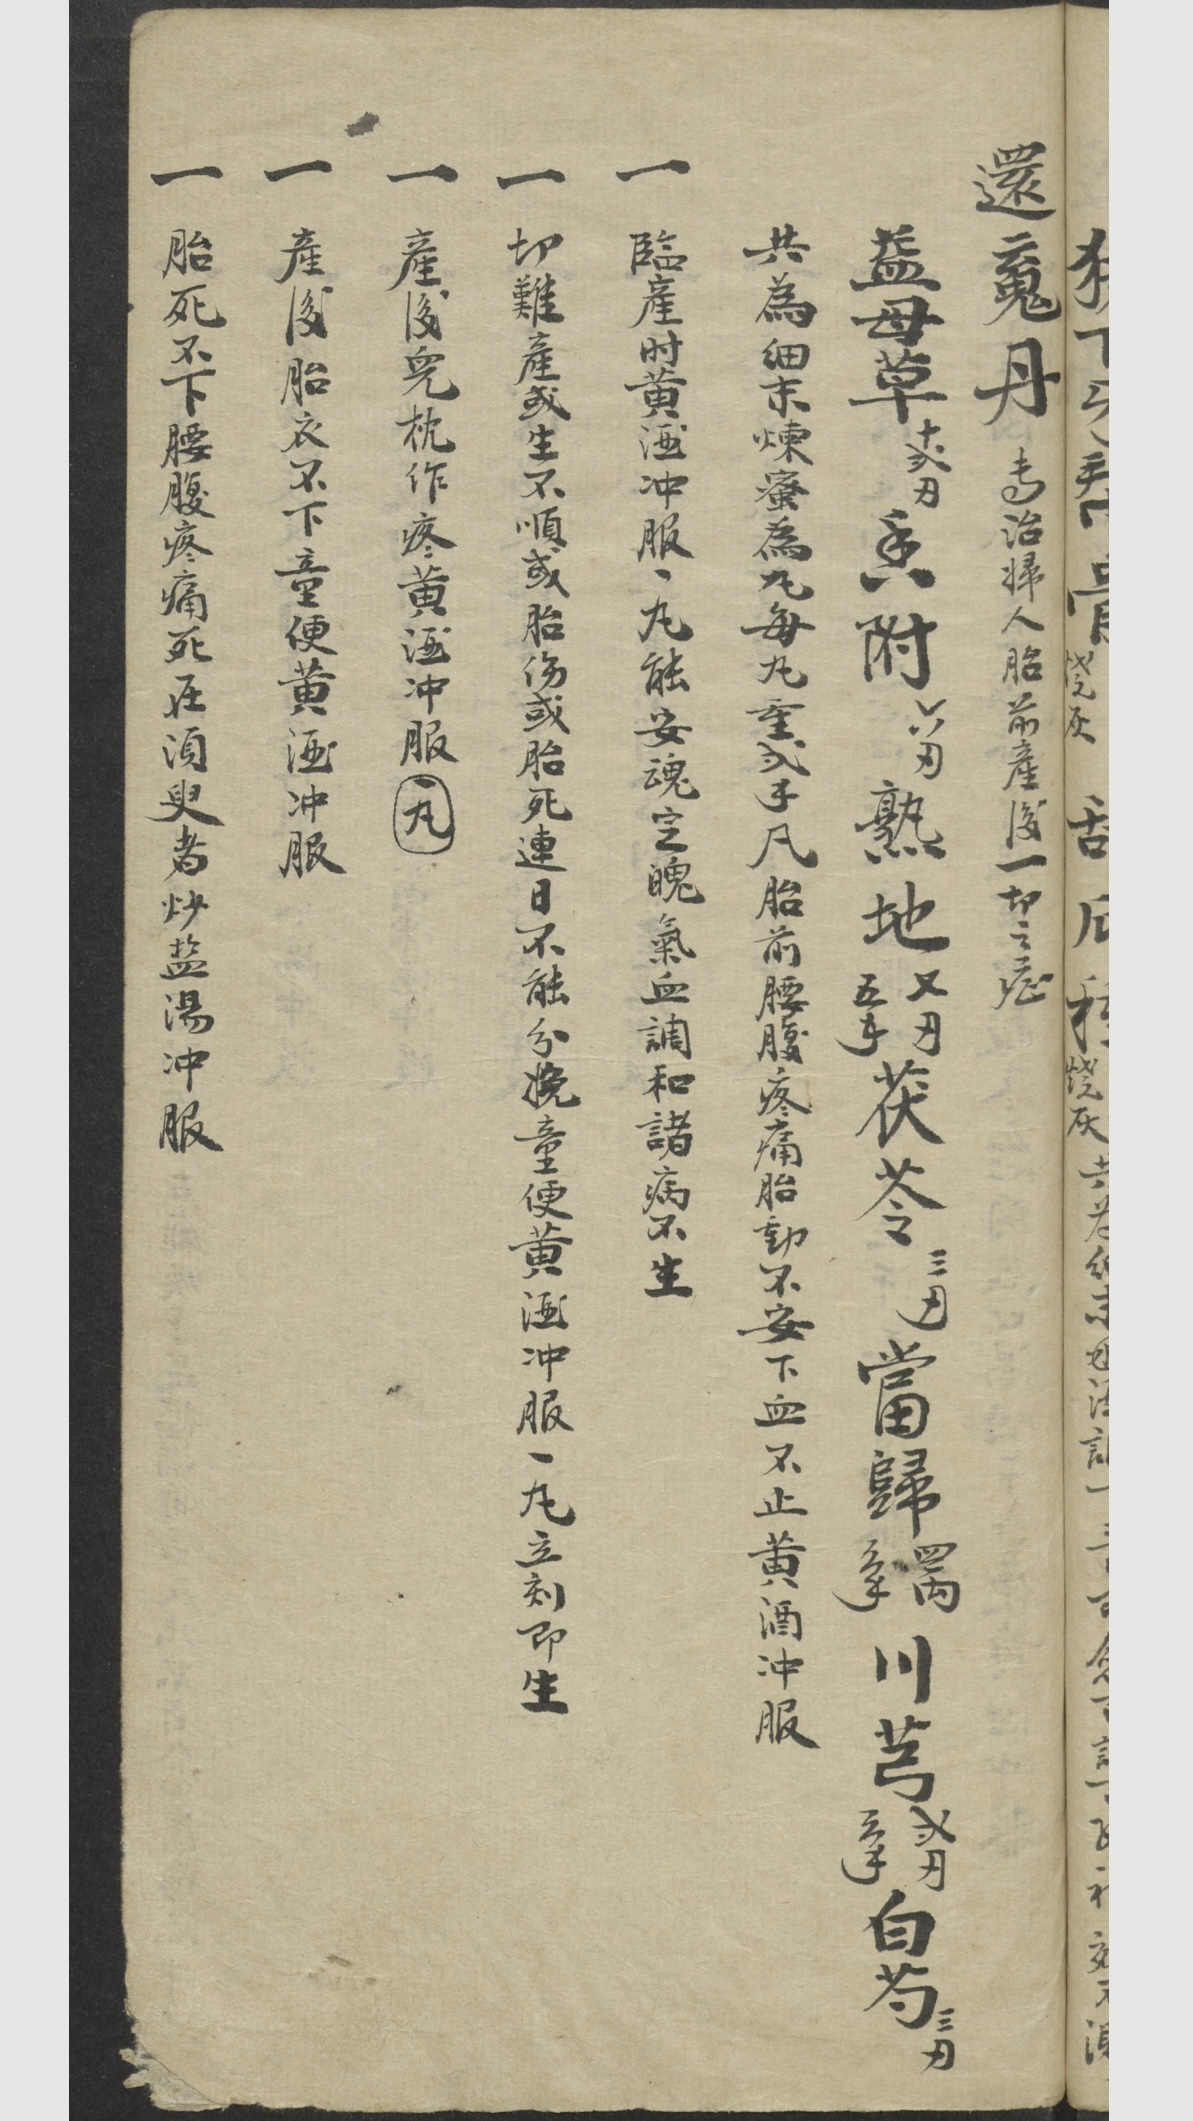 燒灰 燒灰 共為細末
還魂丹 专治婦人胎前產後一切之症
益母草 十弍刄 香附 六刄 熟地 又刄五手 茯苓 三刄 當歸 四两 川芎 弍刄 白芍 三刄
共為细末煉蜜為丸每丸重弍手凡胎前腰腹疼痛胎動不安下血不止黄酒冲服
一 臨產时黄酒冲服一丸能安魂定魄氣血調和諸病不生
一 切難產或生不順或胎伤或胎死連日不能分娩童便黄酒冲服一丸立刻即生
一 產後兒枕作疼黄酒冲服一丸
一 產後胎衣不下童便黄酒冲服
一 胎死不下腰腹疼痛死在須臾者炒盐湯冲服